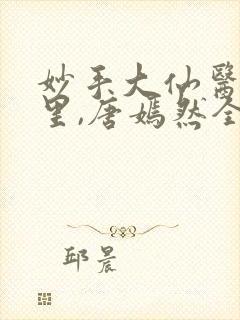 妙手大仙醫
里,唐嫣然全
邱晨